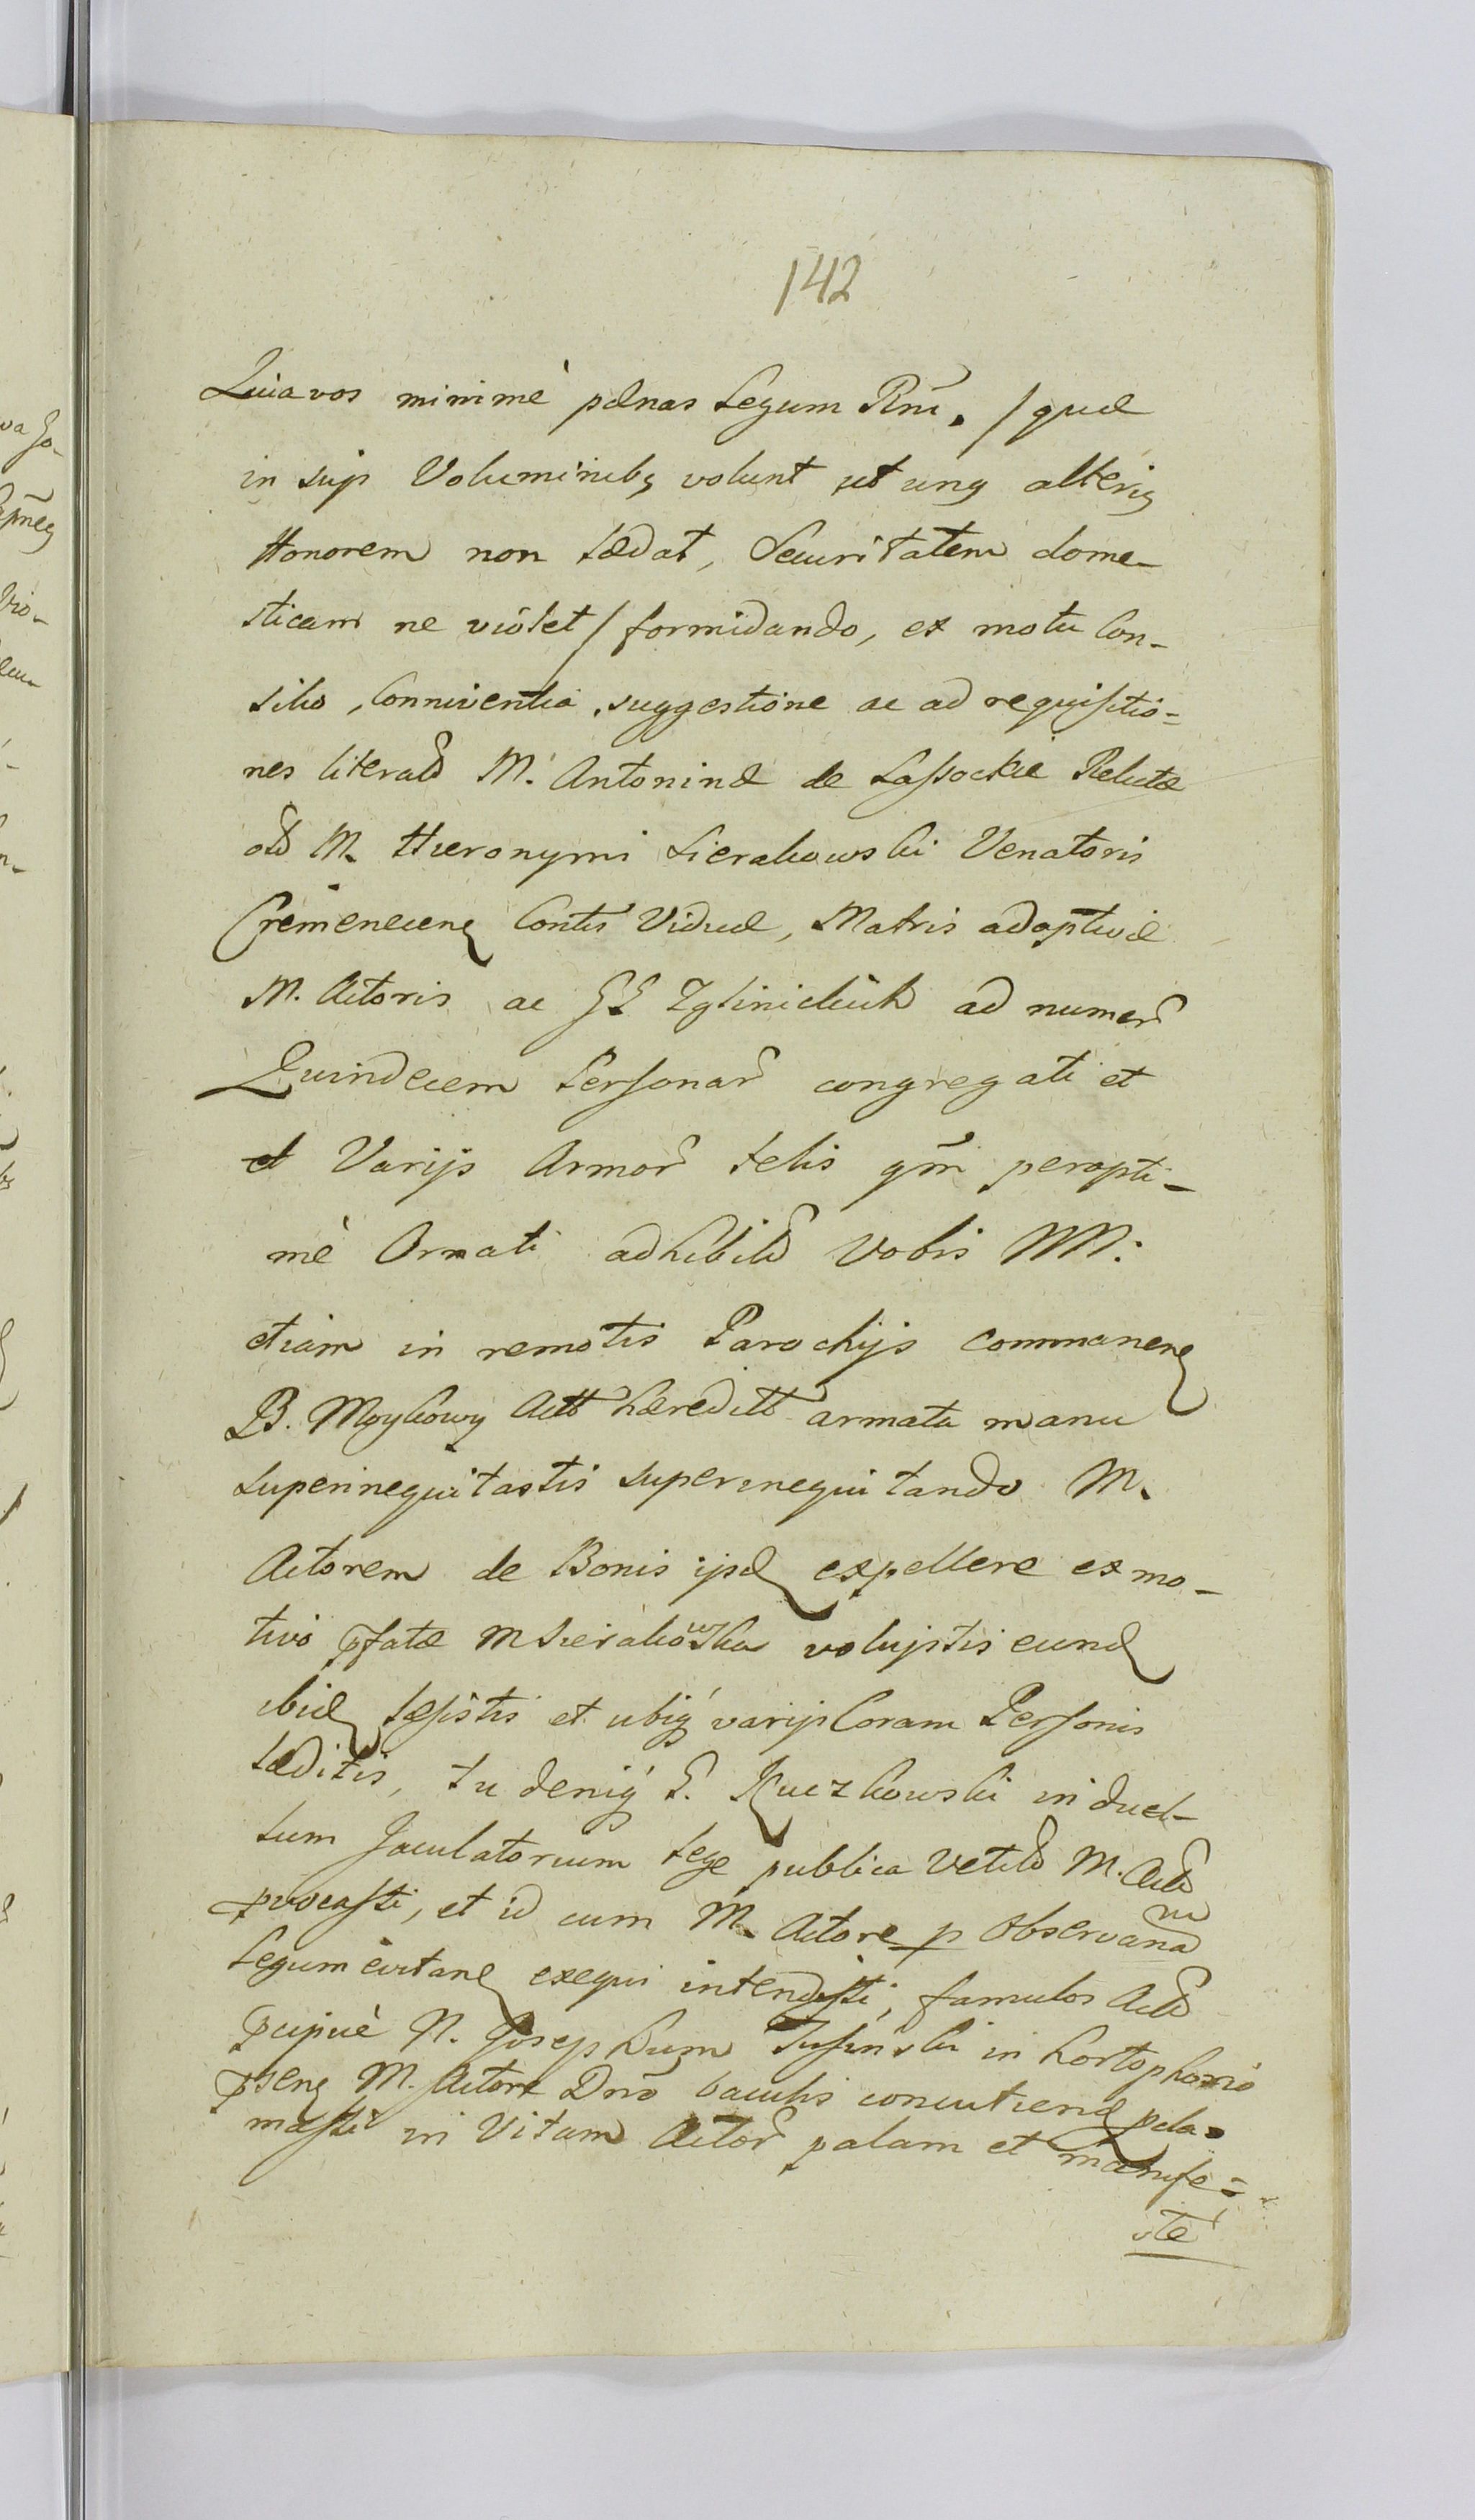 142
Quia vos minimè pænas Legum Rni. / quæ
in suis Voluminibq volunt ut unq alteriq
Honorem non lædat, Securitatem dome-
sticam ne violet / formidando, ex motu Con-
silio, Conniventia, suggestione ac ad requisitio=
nes literal M. Antoninæ de Lassockie Relictæ
old M. Hieronymi Sierakowski Venatoris
Cremenecen Contis Viduæ, Matris adoptivæ
M. Actoris ac GG Zglinickich ad numer
Quindecem Personar congregati et
et Varijs Armor telis qm peropti-
mè Ornati adhibitis Vobis NN.
etiam in remotis Parochijs commanen
B. Moykowy Actt hæreditt armata manu
superinequitastis superinequitando M.
Actorem de Bonis ipsd expellere ex mo-
tivo pfatæ M Sierakowska voluistis eund
ibid læsistis et ubiq varijs Coram Personis
læditis, tu deniq G. Kuczkowski in duel-
lum Jaculatorium lege publica vetit M. Act
pvocasti, et id cum M. Actore p observanam
Legum evitane exequi intendisti, famulos Act
pcipuè N. Josephum Lusinski in hortophorio
psen M. Actore Dno baculis concutiend pcla=
masti in Vitam Actor palam et manife=
stè